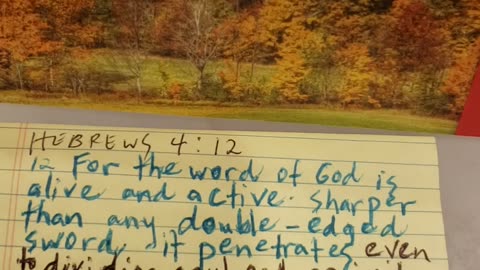 HEBREWS 4:12
12 For the word of God is
alive and active. Sharper
than any double-edged
sword, it penetrates even
to dividing soul and